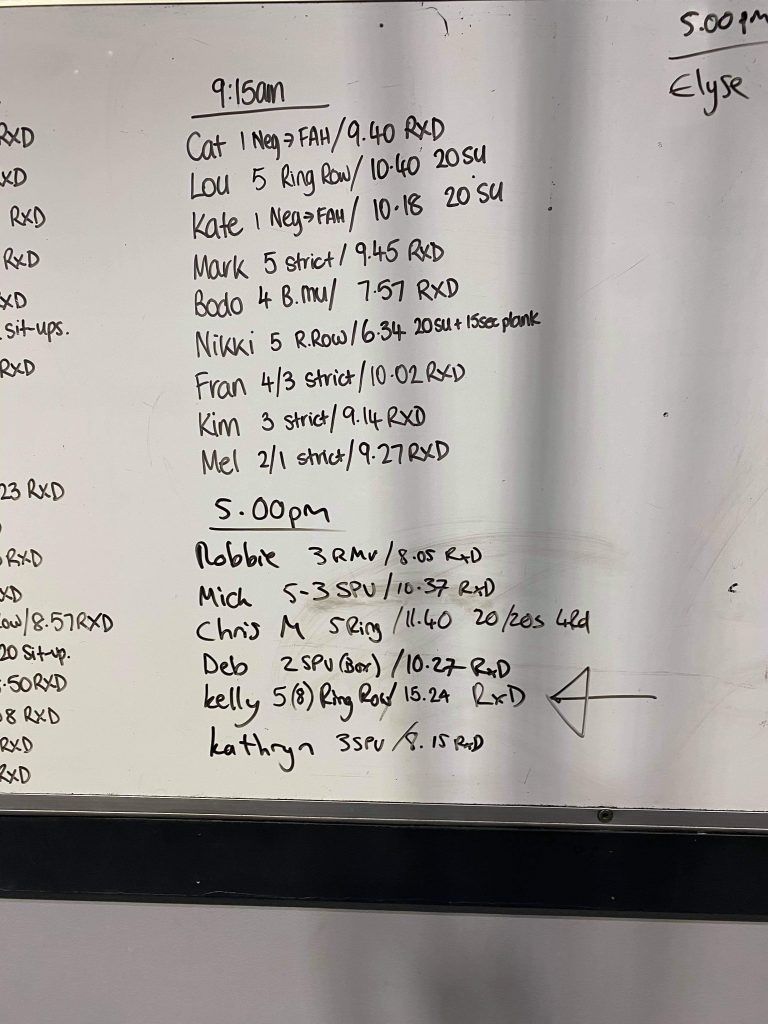 RXD
XD
RXD
RXD
XD
sit-ups.
RXD
23 RXD
RXD
XD
ow/8.57RXD
20 Sit-up.
.50RXD
8 RXD
RXD
RXD
9:15am
Cat 1 Neg→FAH/9.40 RXD
Lou 5 Ring Row/10.40 20SU
Kate 1 Neg→FAH/10.18 20 SU
Mark 5 strict/9.45 RXD
Bodo 4 B.mu/ 7.57 RXD
Nikki 5 R.Row/6.34 20SU+15sec plank
Fran 4/3 strict/10.02RXD
Kim 3 strict/9.14RXD
Mel 2/1 strict/9.27RXD
5.00pm
Robbie 3 RMU/8.05 RXD
Mich 5-3 SPU/10.37 RXD
Chris M 5Ring/11.40 20/20s
Deb 2 SPU (Box)/10.27 RXD
kelly 5(8) Ring Row/15.24 RXD
kathryn 3SPU/8.15 RXD
5.00pm
Elyse